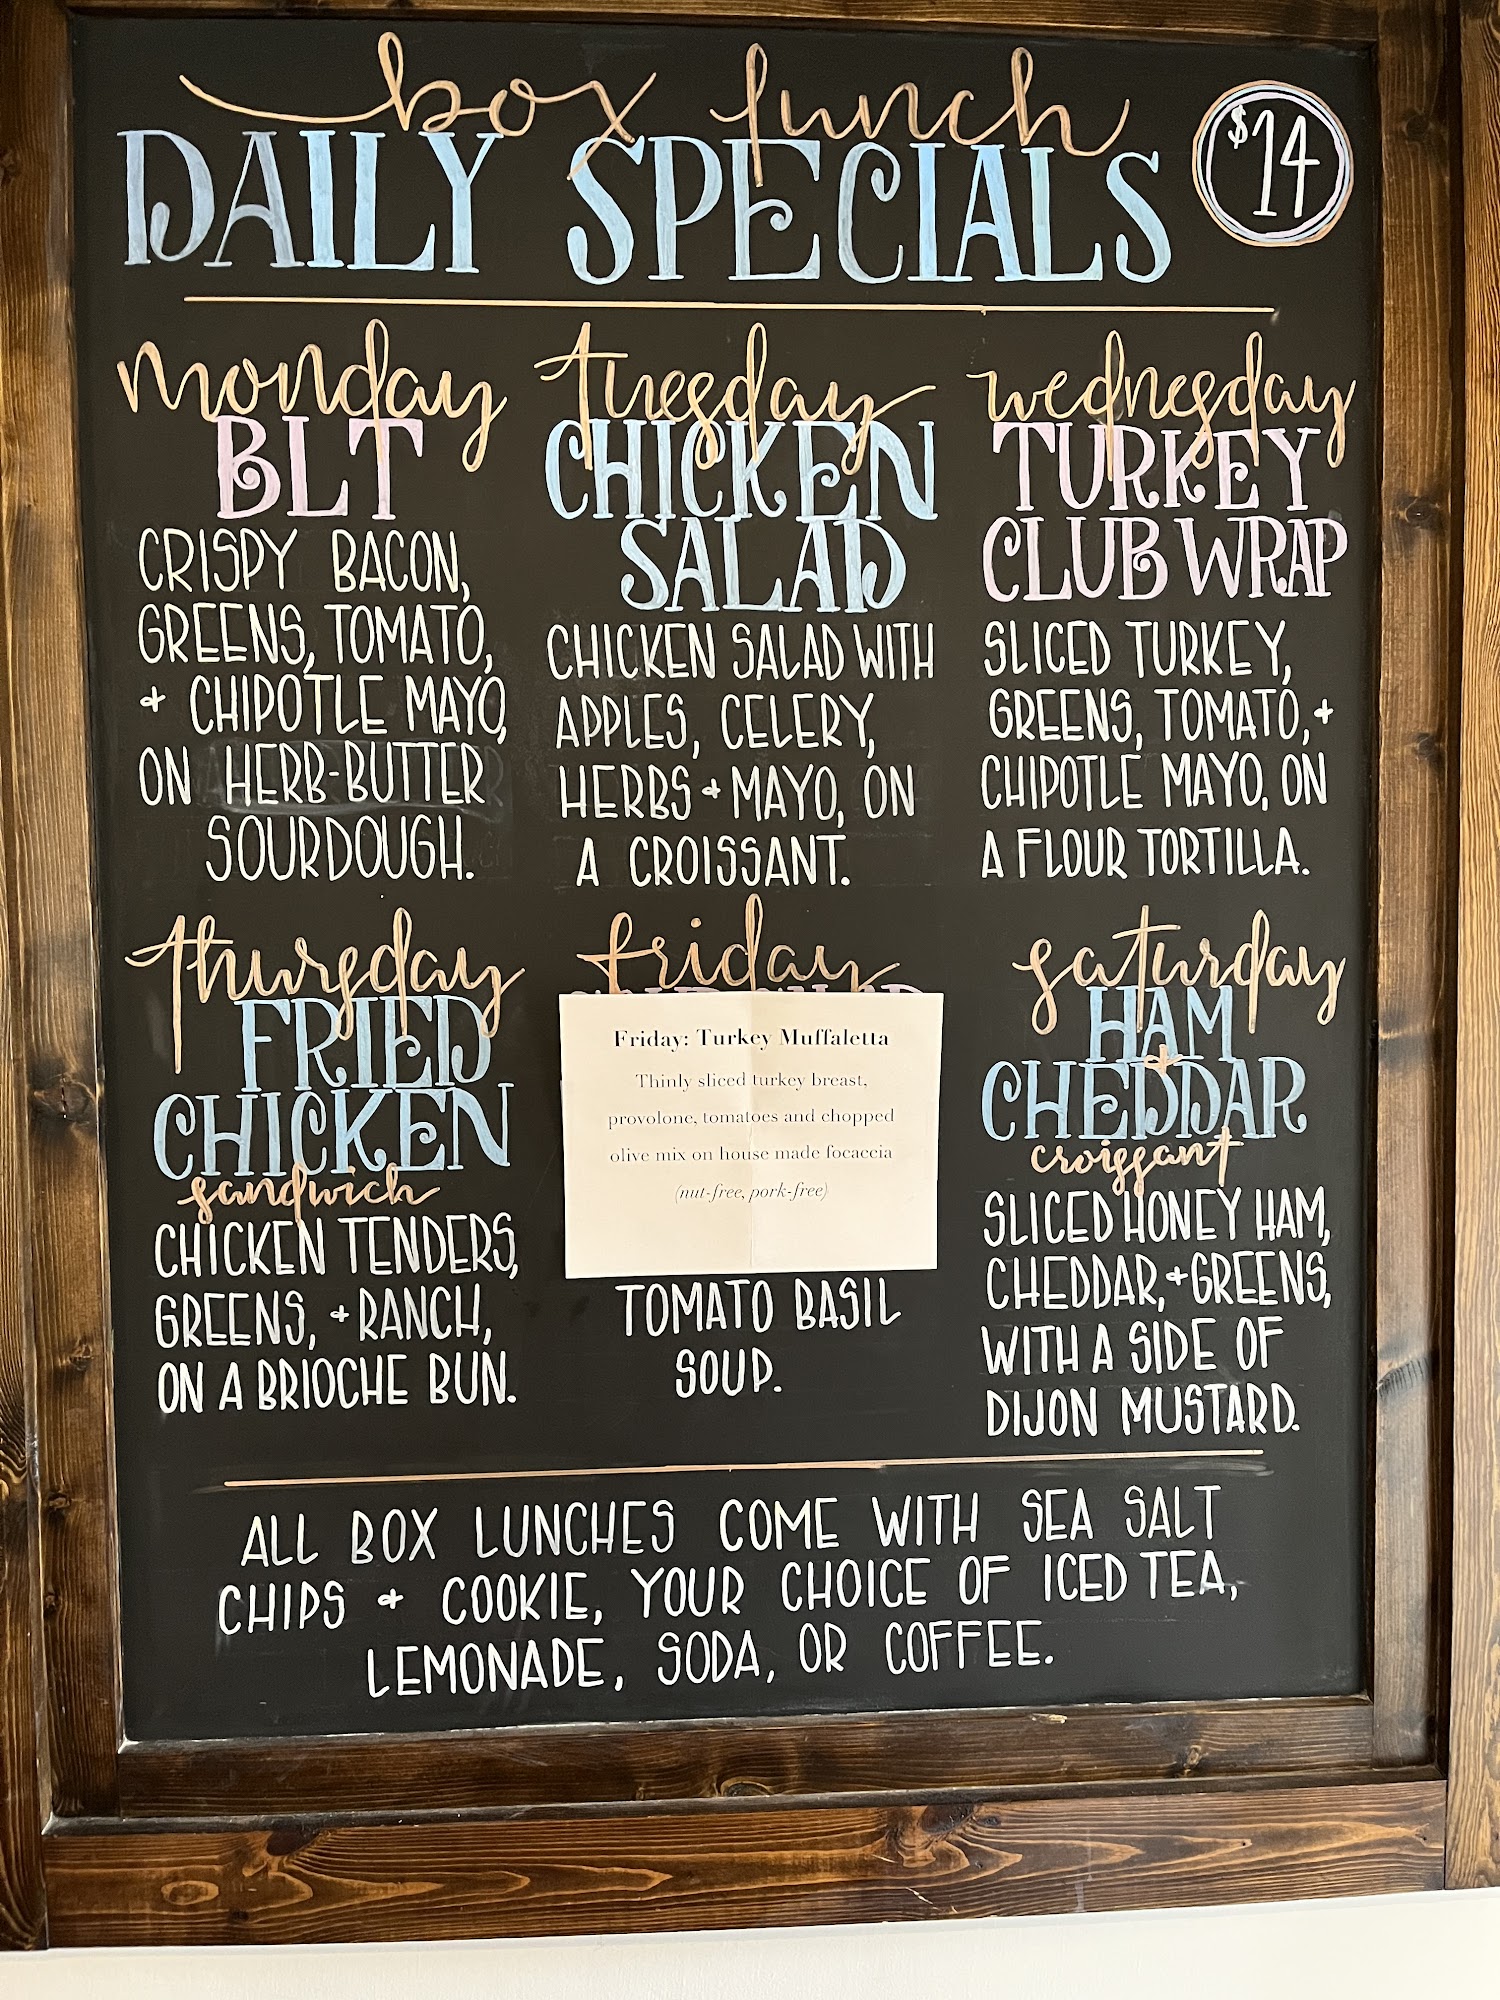 box lunch
DAILY SPECIALS
$14
monday
BLT
CRISPY BACON,
GREENS, TOMATO,
+ CHIPOTLE MAYO,
ON HERB-BUTTER
SOURDOUGH.
tuesday
CHICKEN
SALAD
CHICKEN SALAD WITH
APPLES, CELERY,
HERBS + MAYO, ON
A CROISSANT.
wednesday
TURKEY
CLUB WRAP
SLICED TURKEY,
GREENS, TOMATO, +
CHIPOTLE MAYO, ON
A FLOUR TORTILLA.
thursday
FRIED
CHICKEN
sandwich
CHICKEN TENDERS,
GREENS, + RANCH,
ON A BRIOCHE BUN.
friday
Friday: Turkey Muffaletta
Thinly sliced turkey breast,
provolone, tomatoes and chopped
olive mix on house made focaccia
(nut-free, pork-free)
TOMATO BASIL
SOUP.
saturday
HAM
+
CHEDDAR
croissant
SLICED HONEY HAM,
CHEDDAR, + GREENS,
WITH A SIDE OF
DIJON MUSTARD.
ALL BOX LUNCHES COME WITH SEA SALT
CHIPS + COOKIE, YOUR CHOICE OF ICED TEA,
LEMONADE, SODA, OR COFFEE.